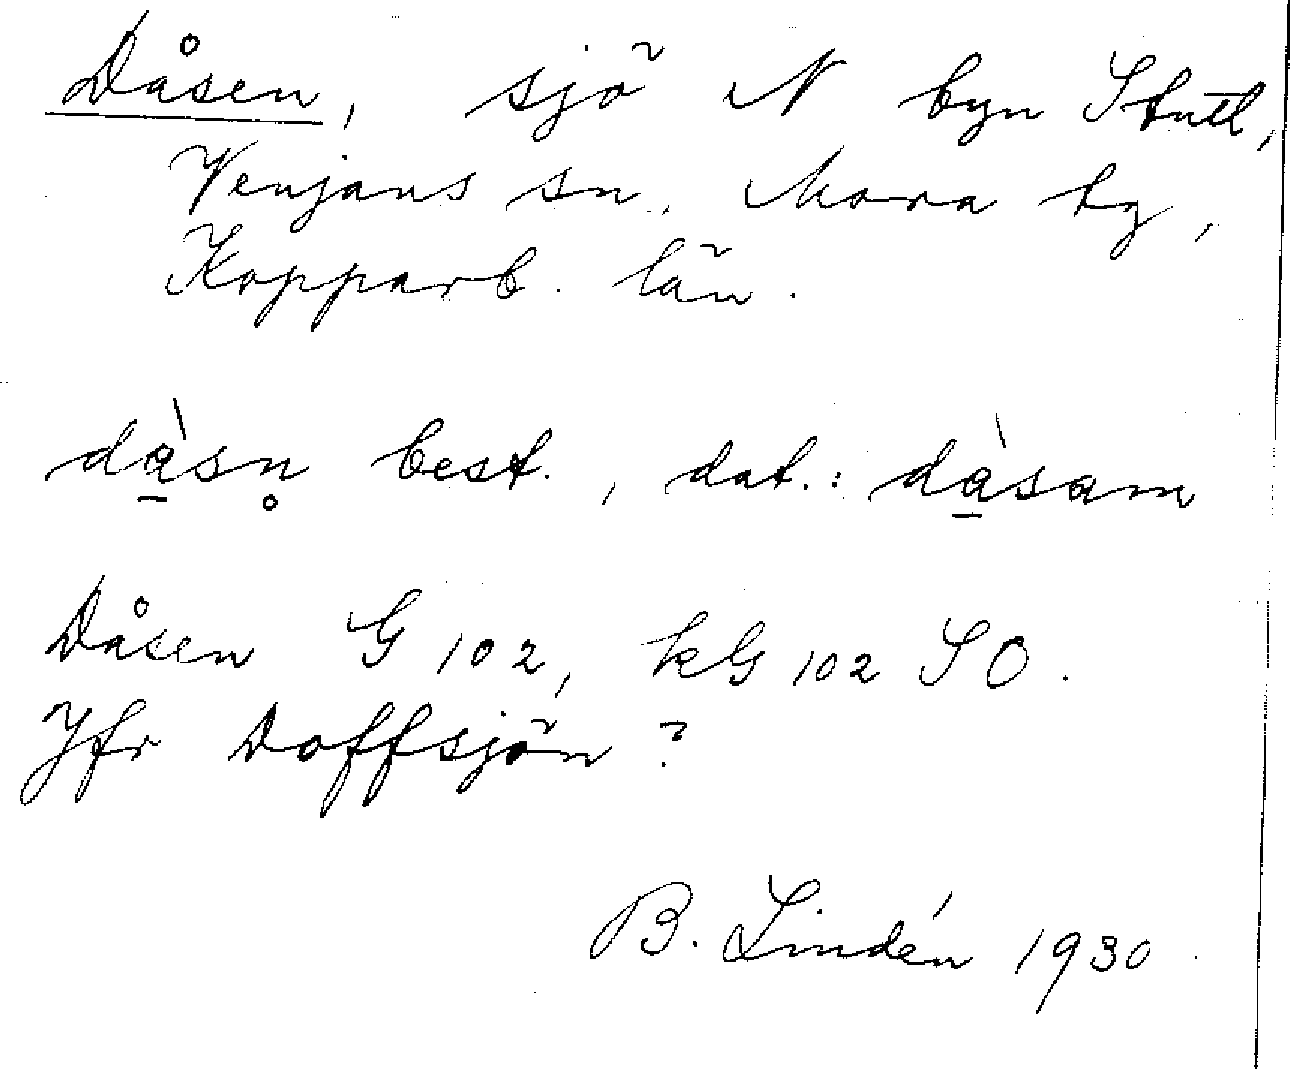 Dåsen, sjö N byn Stutt,
Venjans sn, Mora tg,
Kopparb. län.
då̱̀sn̥ best., dat.: då̱̀sam
Dåsen G 102, kG 102 SO.
Jfr Doffsjön?
B. Lindén 1930.